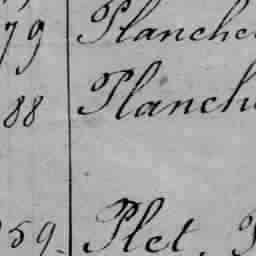 79 Planche
88 Planch
59. Plet.